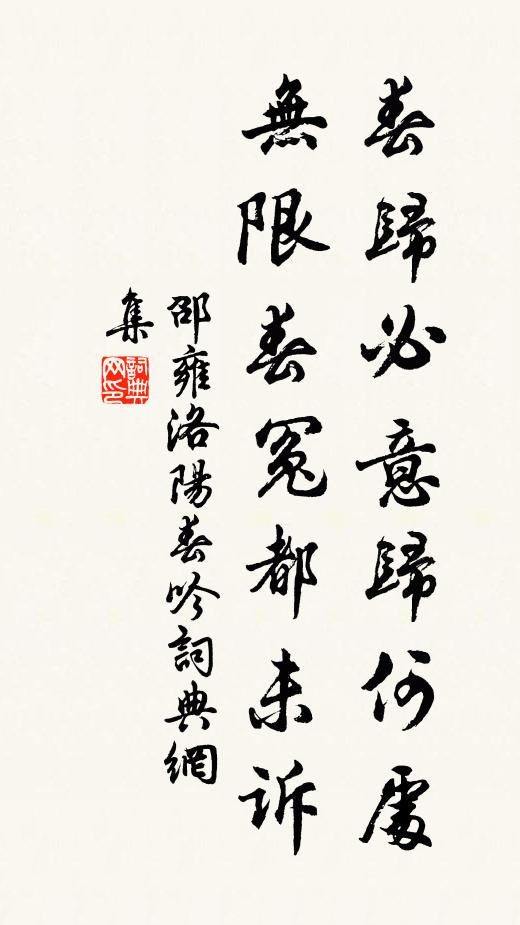 春歸必意歸何處
無限春冤都未訴
邵雍洛陽春吟詞典網
集
詞典
网印